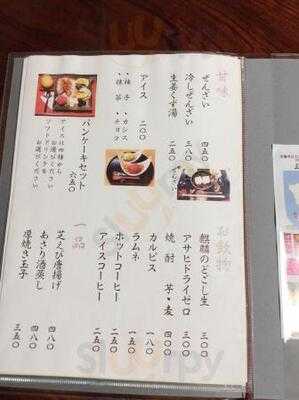 甘味
ぜんざい 四五〇
冷しぜんざい 三八〇
生姜くず湯 二五〇
ぜんざい
アイス 二〇〇
・柚子 ・カシス
・抹茶 ・チョコ
パンケーキセット 六五〇
アイスは四種から
お選びください
ソフトドリンクを
お選びください
お飲物
麒麟のどごし生 三〇〇
アサヒドライゼロ 三〇〇
焼酎 芋・麦 三〇〇
カルピス 一八〇
ラムネ 一五〇
ホットコーヒー 二五〇
アイスコーヒー 二五〇
一品
芝えび唐揚げ 四八〇
あさり酒蒸し 四八〇
厚焼き玉子 三五〇